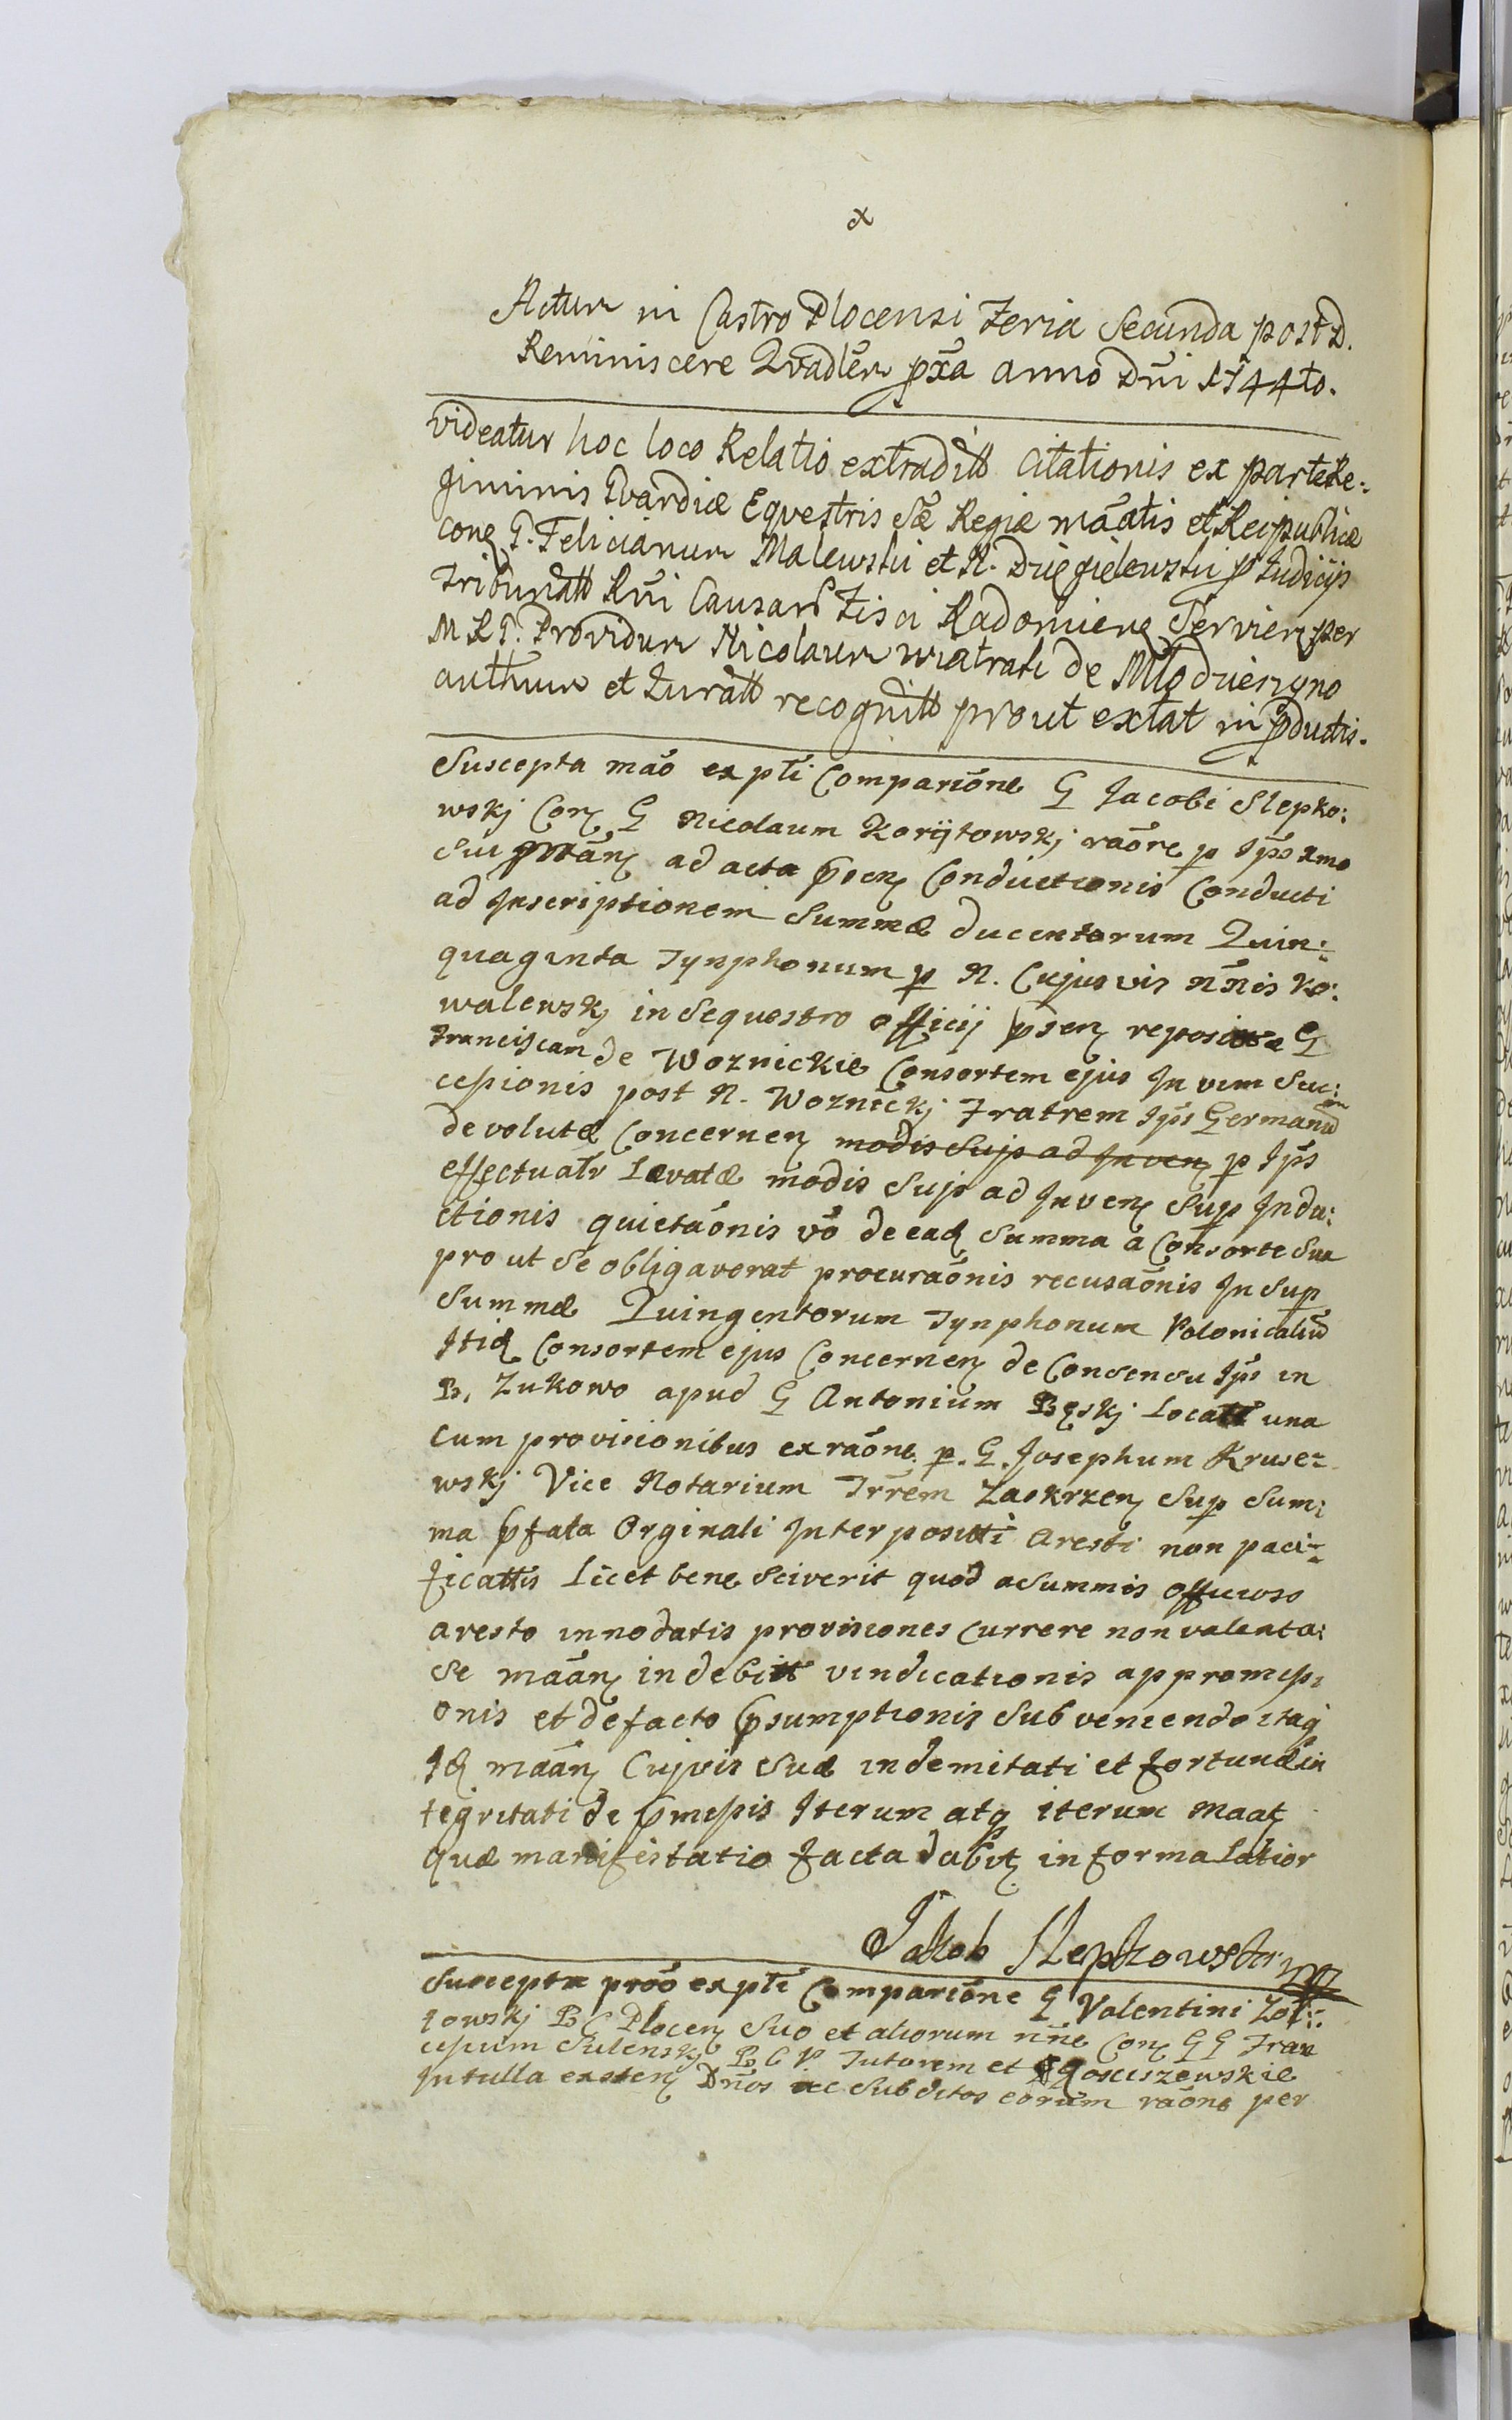 x
Actum in Castro Plocensi Feria Secunda post D.
Reminiscere Qvadlem pxa anno Dni 1744to.
videatur hoc loco Relatio extraditt Citationis ex parte Re:
giminis Gvardiæ Eqvestris Sæ Regiæ maatis et Reipublicæ
con G. Felicianum Malewski et N. Dzięgielewski p Judicijs
Tribunatt Rni CausarP Fisci Radomien Servien per
M R P. Providum Nicolaum wiatrak de Młodzieszyno
authum et Juratt recognitt prout extat in pductis.
Suscepta mao ex pti Comparione G Jacobi Slepko:
wskj Con G Nicolaum Korÿtowskj raone p Ips xmo
Sui Mtan ad acta psen Conductionis Conducti
ad Jnscriptionem Summæ ducentorum Quin:
quaginta Tynphonum p N. Cujusvis nnis Ko:
walewskj in Sequestro officij psen reposite G
Franciscam de Woznickie Consortem ejus Jn vim Suc:
cepionis post N. Woznickj Fratrem Jps Germanum
devolutæ Concernen modis Sujs ad Jnven p Jps
effectuatr Levatæ modis Sujs ad Jnven Sup Jndu:
ctionis quietaonis vo de ead Summa a Consorte Sua
prout Se obligaverat procuraonis recusaonis Jn Sup
Summæ Quingentorum Tynphonum Polonicalium
Jtid Consortem ejus Concernen de Consensu Jps in
B. Zukowo apud G Antonium Bęskj Locatt una
cum provisionibus ex raone p. G. Josephum Krusze-
wskj Vice Notarium Trrem Zaskrzen Sup Sum:
ma pfata Orginali Jnterpositti Aresti non paci-
ficattis Licet bene Sciverit quod a Summis officioso
aresto innodatis provisiones Currere non valent a:
Se maan indebitt vindicationis appromisi:
onis et de facto psumptionis Subveniendo itaq
Jd maan Cujvis Suæ indemitati et fortunæ in
tegritati de pmissis Jterum atq iterum Maat
quæ manifestatio facta dabit in forma Latior
Jakob Slepkowski mp
Suscepta proo ex pti Comparione G Valentini Zoł::
towskj B C Plocen Suo et aliorum nne Con G G Fran
cisum Sulenskj B C P Tutorem et Goscszewskie
Jn tulla existen Dnos ac Subditos eorum raone per